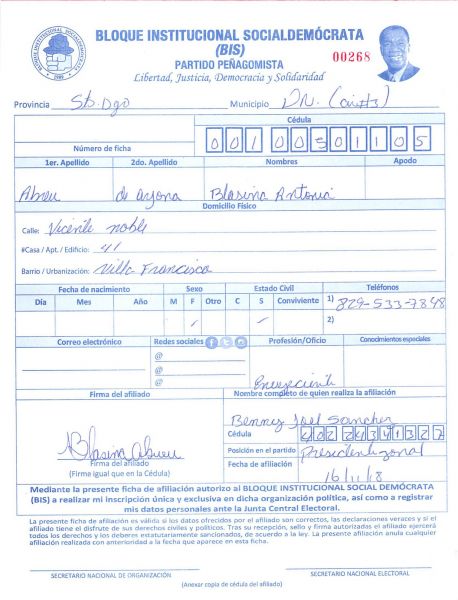 BLOQUE INSTITUCIONAL SOCIALDEMÓCRATA
(BIS)
PARTIDO PEÑAGOMISTA
00268
Libertad, Justicia, Democracia y Solidaridad
BLOQUE INSTITUCIONAL SOCIALDEMOCRATA
Provincia Sto. Dgo Municipio D.N.
Cédula
Número de ficha
1er. Apellido 2do. Apellido Nombres Apodo
Abreu de arjona Blasina Antonia
Domicilio Físico
Calle: Vicente noble
#Casa / Apt. / Edificio: 41
Barrio / Urbanización: Villa Francisca
Fecha de nacimiento Sexo Estado Civil Teléfonos
Día Mes Año M F Otro C S Conviviente 1) 829-533-7848
2)
Correo electrónico Redes sociales Profesión/Oficio Conocimientos especiales
@
@
@
Firma del afiliado Nombre completo de quien realiza la afiliación
Benny Joel Sanchez
Cédula 402 2434132 7
Blasina Abreu
Posición en el partido Presidente zonal
Firma del afiliado
(Firma igual que en la Cédula)
Fecha de afiliación 16/11/18
Mediante la presente ficha de afiliación autorizo al BLOQUE INSTITUCIONAL SOCIAL DEMÓCRATA
(BIS) a realizar mi inscripción única y exclusiva en dicha organización política, así como a registrar
mis datos personales ante la Junta Central Electoral.
La presente ficha de afiliación es válida si los datos ofrecidos por el afiliado son correctos, las declaraciones veraces y si el
afiliado tiene el disfrute de sus derechos civiles y políticos. Tras su recepción, sello y firma autorizadas el afiliado ejercerá
todos los derechos y los deberes estatutariamente sancionados, de acuerdo a la ley. La presente afiliación anula cualquier
afiliación realizada con anterioridad a la fecha que aparece en esta ficha.
SECRETARIO NACIONAL DE ORGANIZACIÓN SECRETARIO NACIONAL ELECTORAL
(Anexar copia de cédula del afiliado)